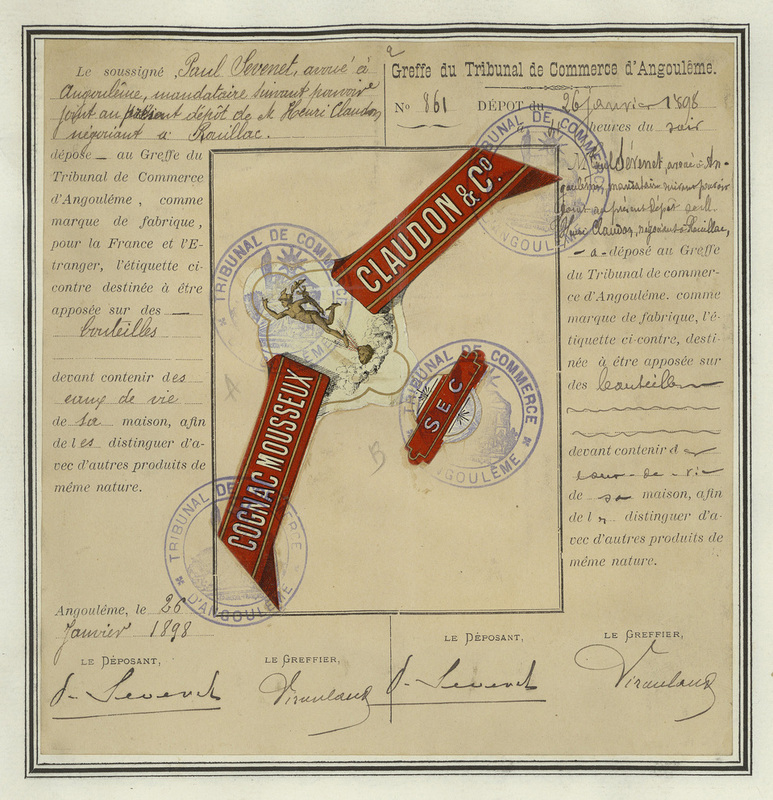 Le soussigné Paul Sevenet, avoué à
Angoulême, mandataire suivant pouvoir
joint au présent dépôt de M Henri Claudon
négociant à Rouillac.
dépose au Greffe du
Tribunal de Commerce
d'Angoulême, comme
marque de fabrique,
pour la France et l'E-
tranger, l'étiquette ci-
contre destinée à être
apposée sur des
bouteilles
devant contenir des
eaux de vie
de sa maison, afin
de les distinguer d'a-
vec d'autres produits de
même nature.
Angoulême, le 26
Janvier 1898
LE DÉPOSANT,
LE GREFFIER,
P. Sevenet
CLAUDON & Co.
COGNAC MOUSSEUX
SEC
A
B
TRIBUNAL DE COMMERCE
D'ANGOULÊME
TRIBUNAL DE COMMERCE
D'ANGOULÊME
TRIBUNAL DE COMMERCE
D'ANGOULÊME
TRIBUNAL DE COMMERCE
D'ANGOULÊME
2
Greffe du Tribunal de Commerce d'Angoulême.
No 861 DÉPOT du 26 Janvier 1898
heures du soir
Sévenet, avoué à An-
goulême, mandataire suivant pouvoir
joint au présent dépôt de M.
Henri Claudon, négociant à Rouillac,
a déposé au Greffe
du Tribunal de commer-
ce d'Angoulême. comme
marque de fabrique, l'é-
tiquette ci-contre, desti-
née à être apposée sur
des bouteilles
devant contenir d
eaux-de-vie
de sa maison, afin
de l distinguer d'a-
vec d'autres produits de
même nature.
LE DÉPOSANT,
LE GREFFIER,
P. Sevenet